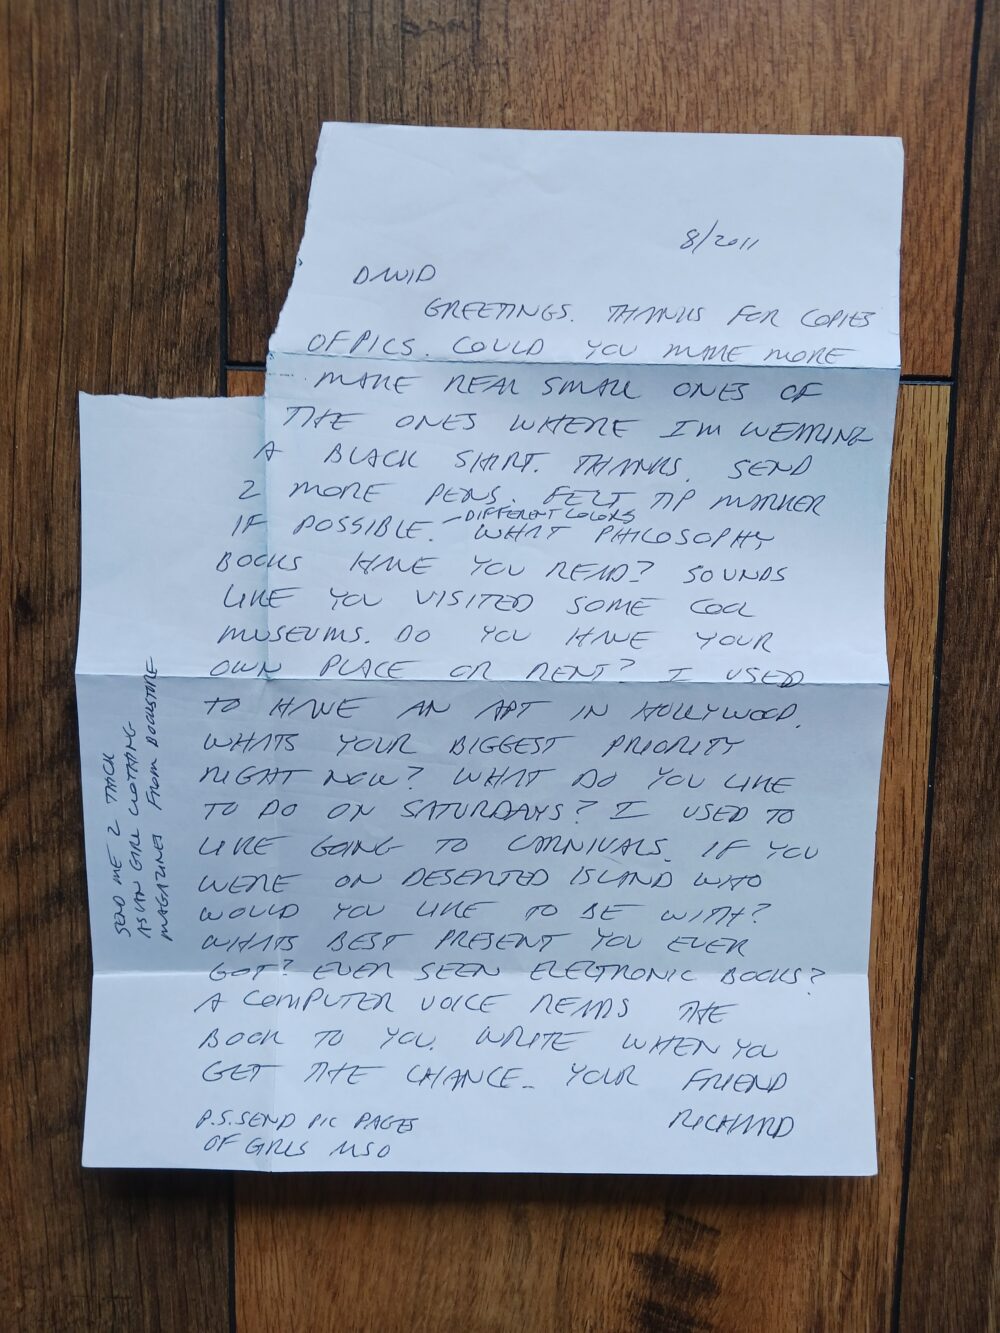 8/2011
DAVID
GREETINGS. THANKS FOR COPIES
OF PICS. COULD YOU MAKE MORE
MAKE REAL SMALL ONES OF
THE ONES WHERE I'M WEARING
A BLACK SHIRT. THANKS. SEND
2 MORE PENS. FELT TIP MARKER
IF POSSIBLE. - DIFFERENT COLORS WHAT PHILOSOPHY
BOOKS HAVE YOU READ? SOUNDS
LIKE YOU VISITED SOME COOL
MUSEUMS. DO YOU HAVE YOUR
OWN PLACE OR RENT? I USED
TO HAVE AN APT IN HOLLYWOOD.
WHATS YOUR BIGGEST PRIORITY
RIGHT NOW? WHAT DO YOU LIKE
TO DO ON SATURDAYS? I USED TO
LIKE GOING TO CARNIVALS. IF YOU
WERE ON DESERTED ISLAND WHO
WOULD YOU LIKE TO BE WITH?
WHATS BEST PRESENT YOU EVER
GOT? EVER SEEN ELECTRONIC BOOKS?
A COMPUTER VOICE READS THE
BOOK TO YOU. WRITE WHEN YOU
GET THE CHANCE. YOUR FRIEND
RICHARD
P.S. SEND PIC PAGES
OF GIRLS ALSO
SEND ME 2 THICK
ASIAN GIRL CLOTHING
MAGAZINES FROM BOOKSTORE